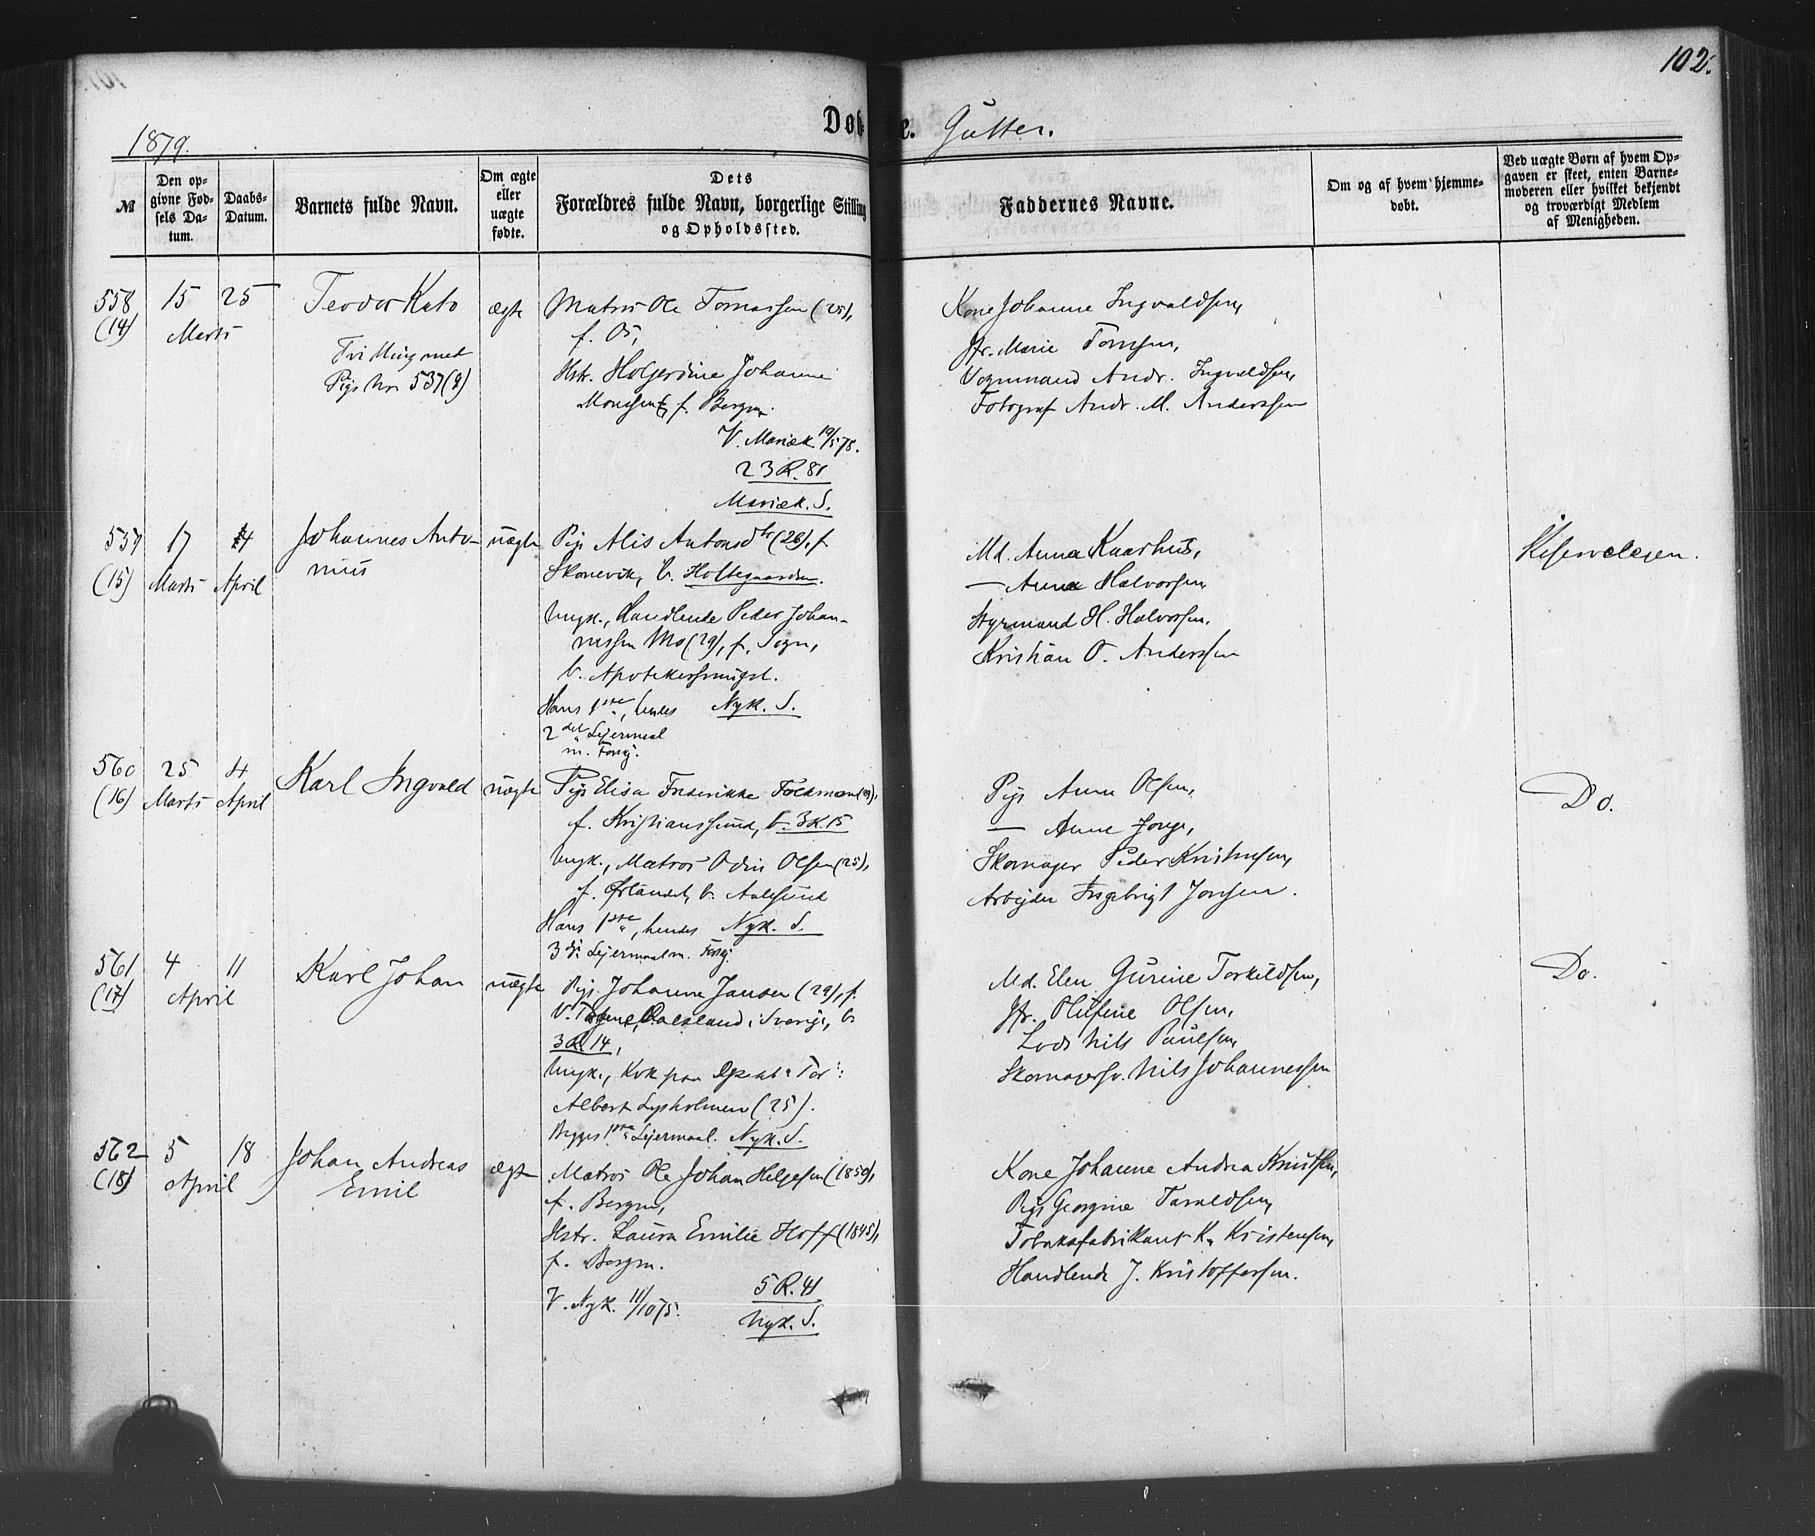 102.
1879.
Døb e. Gutter.
№
Den opgivne Fødsels Datum.
Daabs-Datum.
Barnets fulde Navn.
Om ægte eller uægte fødte.
Dets
Forældres fulde Navn, borgerlige Stilling
og Opholdssted.
Faddernes Navne.
Om og af hvem hjemmedøbt.
Ved uægte Børn af hvem Opgaven er skeet, enten Barnemoderen eller hvilket bekjendt og troværdigt Medlem af Menigheden.
558
(14)
15 25
Marts
Teodor Kato
Tvilling med
Pige No 537 (9)
ægte
Matros Ole Tomassen (25),
f. Os,
Hstr. Holgerdine Johanne
Monssen, f. Bergen.
V. Mariæk. 19/5 78.
23 R. 81
Mariæk. S.
Kone Johanne Ingvaldsen,
Jfr. Marie Tomsen,
Vognmand Andr. Ingvaldsen,
Fotograf Andr. M. Anderssen
559
(15)
17 Marts
4 April
Johannes Anto-
nius
uægte
Pige Alis Antonsdtr (26), f.
Skonevik, b. Holtegaarden.
Ungk., Handlende Peder Johan-
nessen Mo (29), f. Sogn,
b. Apotekersmuget.
Hans 1ste, hendes Nyk. S.
2det Lejermaal
m. Forsg.
Md. Anna Kaarhus,
— Anna Halvorsen,
Styrmand H. Halvorsen,
Kristian O. Anderssen
560
(16)
25 Marts
4 April
Karl Ingvald
uægte
Pige Elisa Frederikke
f. Kristianssund, b. 3 R. 15
Ungk., Matros Odin Olsen (25),
f. Ørlandet, b. Aalesund
Hans 1ste, hendes Nyk. S.
3die Lejermaal m. Forsg.
Pige Anna Olsen,
— Anne
Skomager Peder Kristensen,
Arbejder Ingebrigt Jonsen.
Do.
561
(17)
4 11
April
Karl Johan
uægte
Pige Johanne Jansen (29), f.
Dalsland i Sverige, b.
3 R. 14,
Ungk., Kok paa
Albert Lysholmen (25).
Begges 1ste Lejermaal. Nyk. S.
Md. Elen Gurine Torkildsen,
Jfr. Olufine Olsen,
Lods Nils Paulsen,
Skomagersv. Nils Johannessen
Do.
562
(18)
5 18
April
Johan Andreas
Emil
ægte
Matros Ole Johan Helgesen (1850),
f. Bergen,
Hstr. Laura Emilie Hoff (1845),
f. Bergen.
5 R. 41
V. Nyk. 11/10 75.
Nyk. S.
Kone Johanne Andrea Knutsen,
Pige Georgine Taraldsen,
Tobaksfabrikant K. Kristensen,
Handlende J. Kristoffersen.